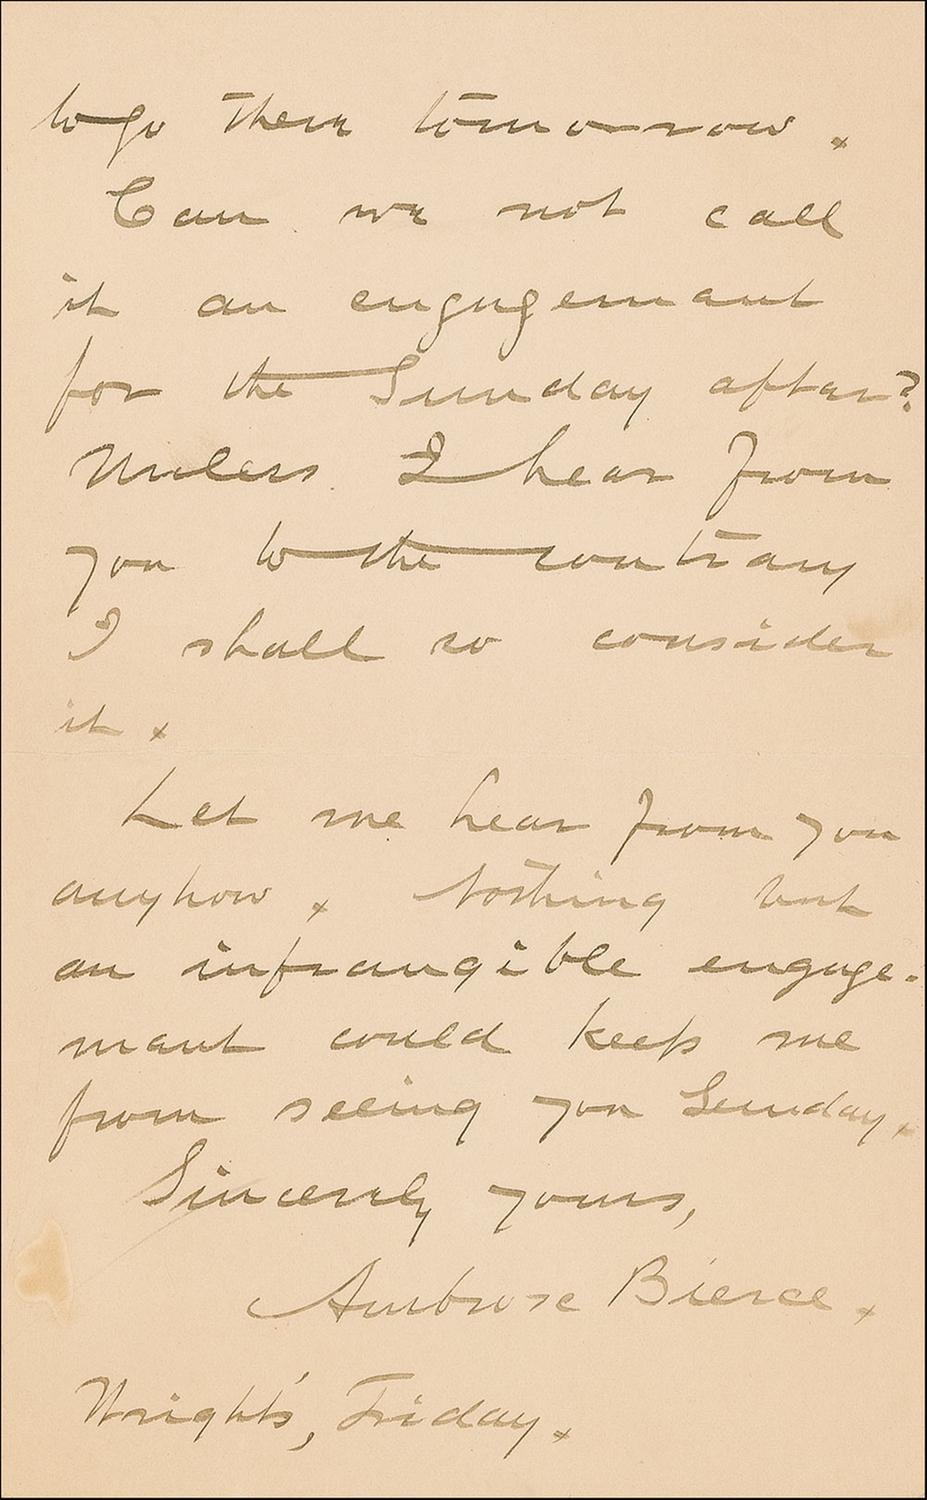 to go there tomorrow.
Can we not call
it an engagement
for the Sunday after?
Unless I hear from
you to the contrary
I shall so consider
it.
Let me hear from you
anyhow. Nothing but
an infrangible engage-
ment could keep me
from seeing you Sunday.
Sincerely yours,
Ambrose Bierce.
Wright's, Friday.